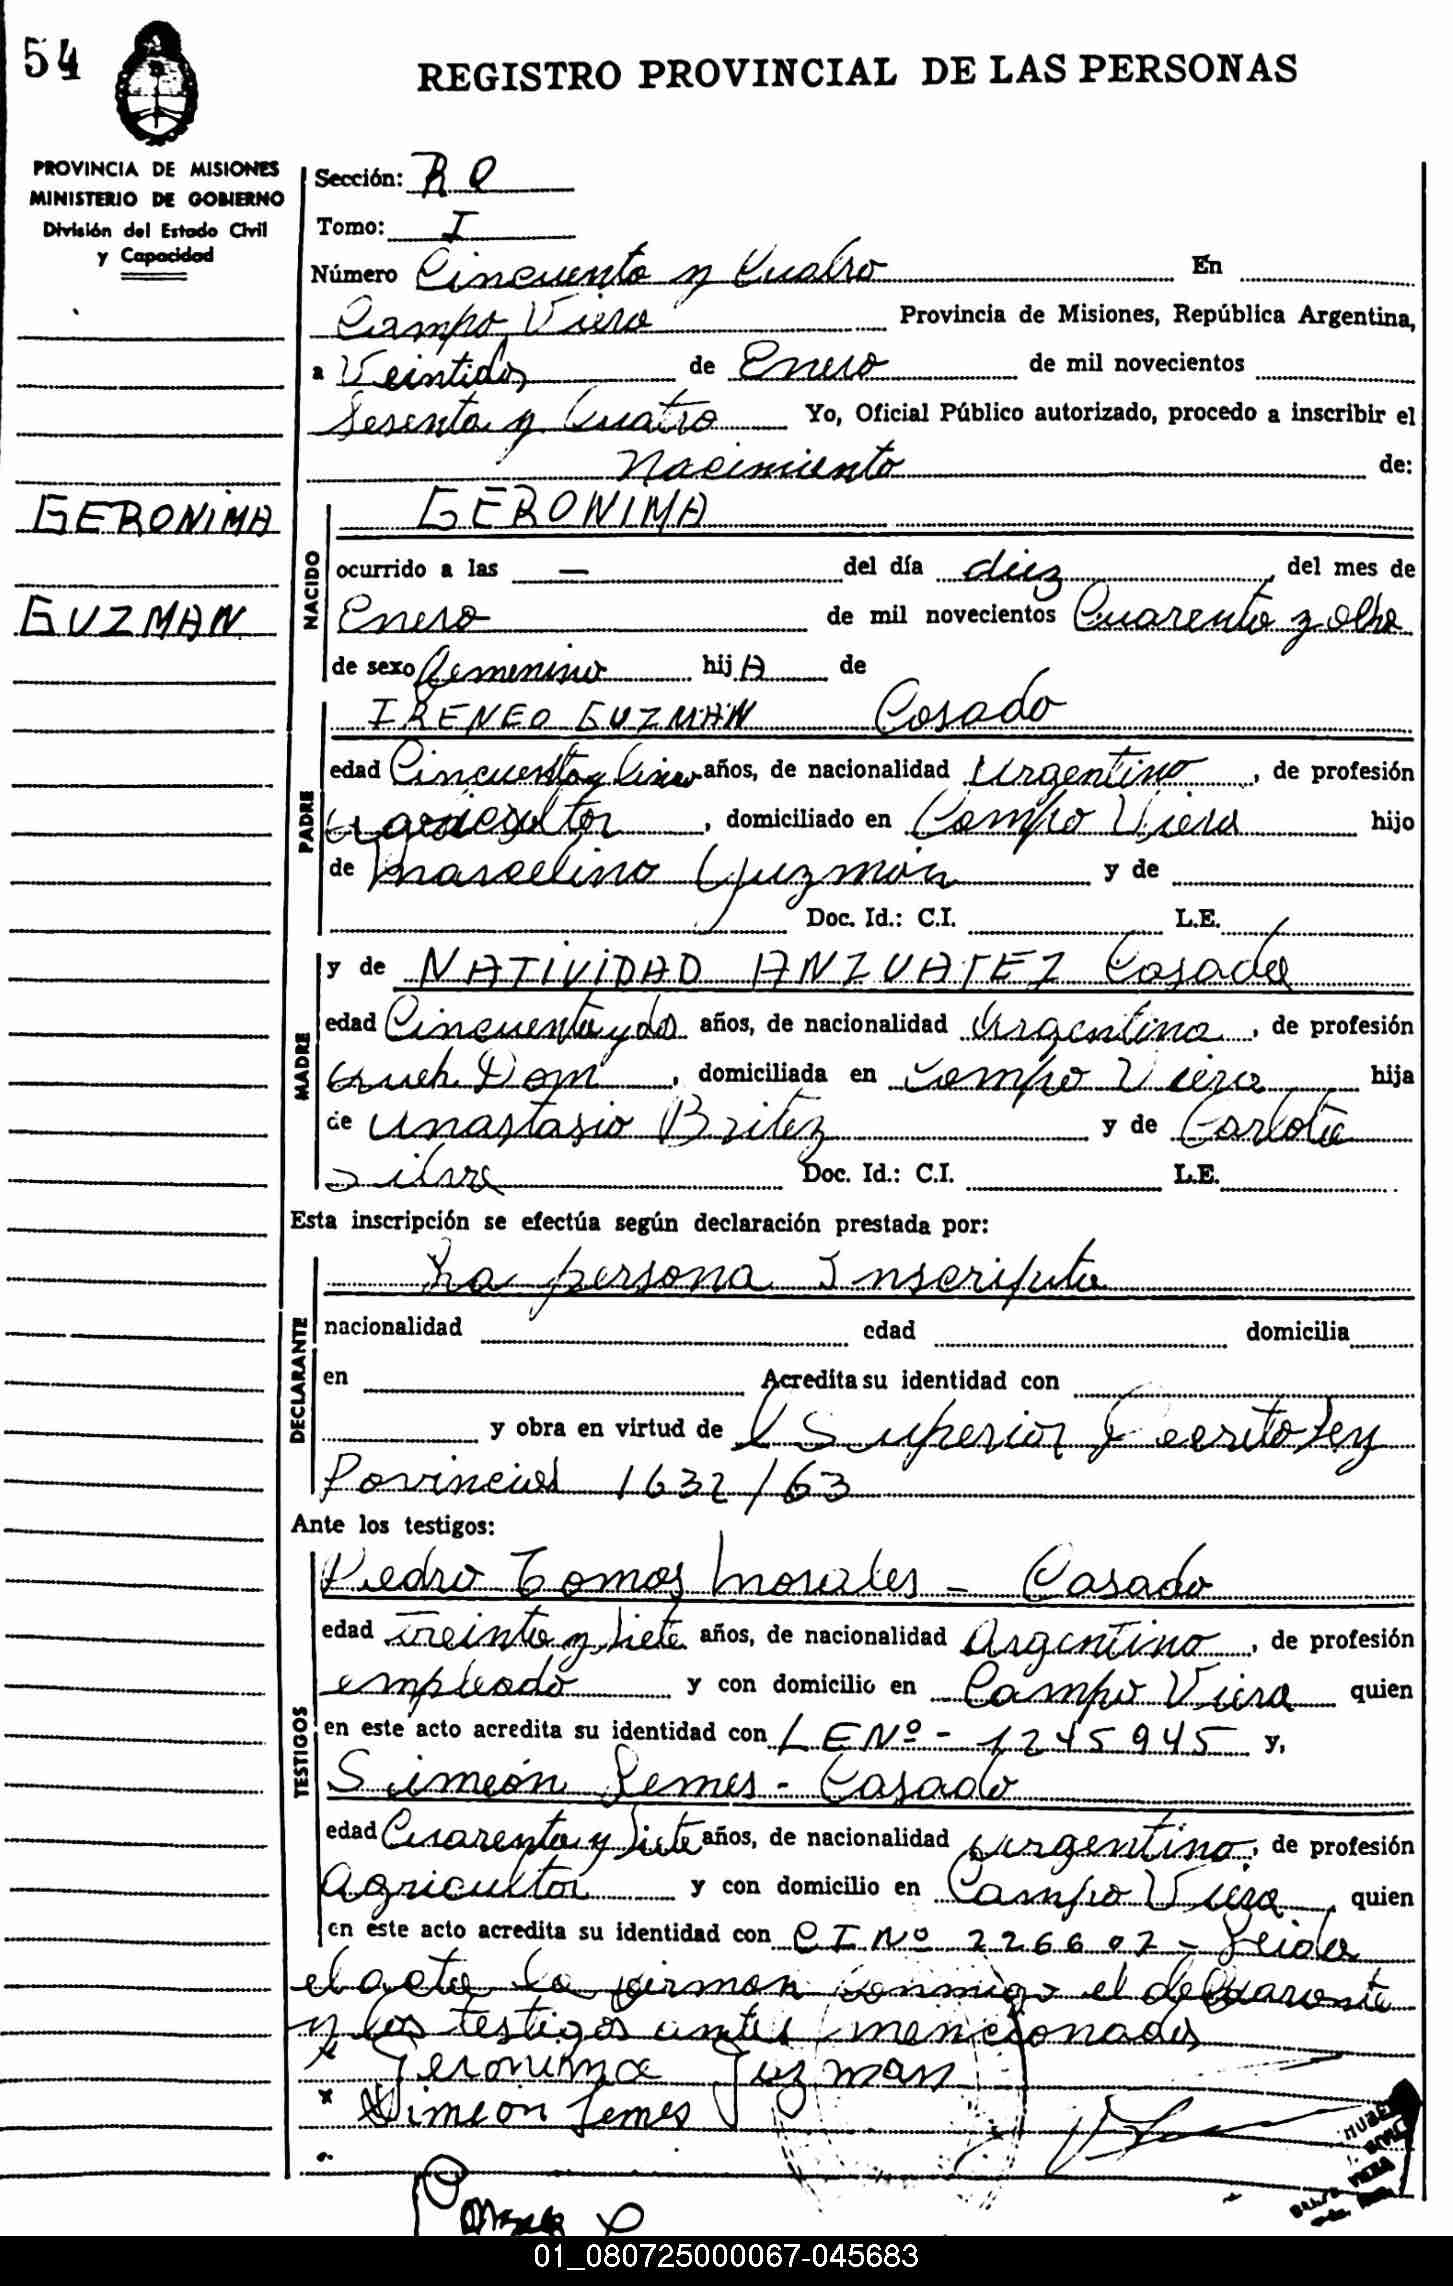 54
REGISTRO PROVINCIAL DE LAS PERSONAS
PROVINCIA DE MISIONES
MINISTERIO DE GOBIERNO
División del Estado Civil
y Capacidad
Sección: R O
Tomo: I
Número Cincuenta y Cuatro En
Campo Viera Provincia de Misiones, República Argentina,
a Veintidos de Enero de mil novecientos
Sesenta y Cuatro Yo, Oficial Público autorizado, procedo a inscribir el
Nacimiento de:
GERONIMA
GUZMAN
NACIDO
GERONIMA
ocurrido a las — del día diez del mes de
Enero de mil novecientos Cuarenta y Ocho
de sexo femenino hijA de
PADRE
IRENEO GUZMAN Casado
edad Cincuenta y Cinco años, de nacionalidad Argentino, de profesión
Agricultor, domiciliado en Campo Viera hijo
de Marcelino Guzmán y de
Doc. Id.: C.I. L.E.
MADRE
y de NATIVIDAD Casada
edad Cincuenta y dos años, de nacionalidad Argentina, de profesión
Dom, domiciliada en Campo Viera hija
de Anastasio Britez y de Carlota
Silva Doc. Id.: C.I. L.E.
Esta inscripción se efectúa según declaración prestada por:
DECLARANTE
La persona Inscripta
nacionalidad edad domicilia
en Acredita su identidad con
y obra en virtud de l Superior Decreto Ley
Povincial 1632/63
Ante los testigos:
TESTIGOS
Pedro Tomas Morales - Casado
edad Treinta y Siete años, de nacionalidad Argentino, de profesión
empleado y con domicilio en Campo Viera quien
en este acto acredita su identidad con LENº - 1245945 y,
Simeón Lemes - Casado
edad Cuarenta y Siete años, de nacionalidad Argentino, de profesión
Agricultor y con domicilio en Campo Viera, quien
en este acto acredita su identidad con CI Nº 226602 - Leida
el acta la firman conmigo el declarante
y los testigos antes mencionados
x Geronima Guzman
x Simeon Lemes
01_080725000067-045683